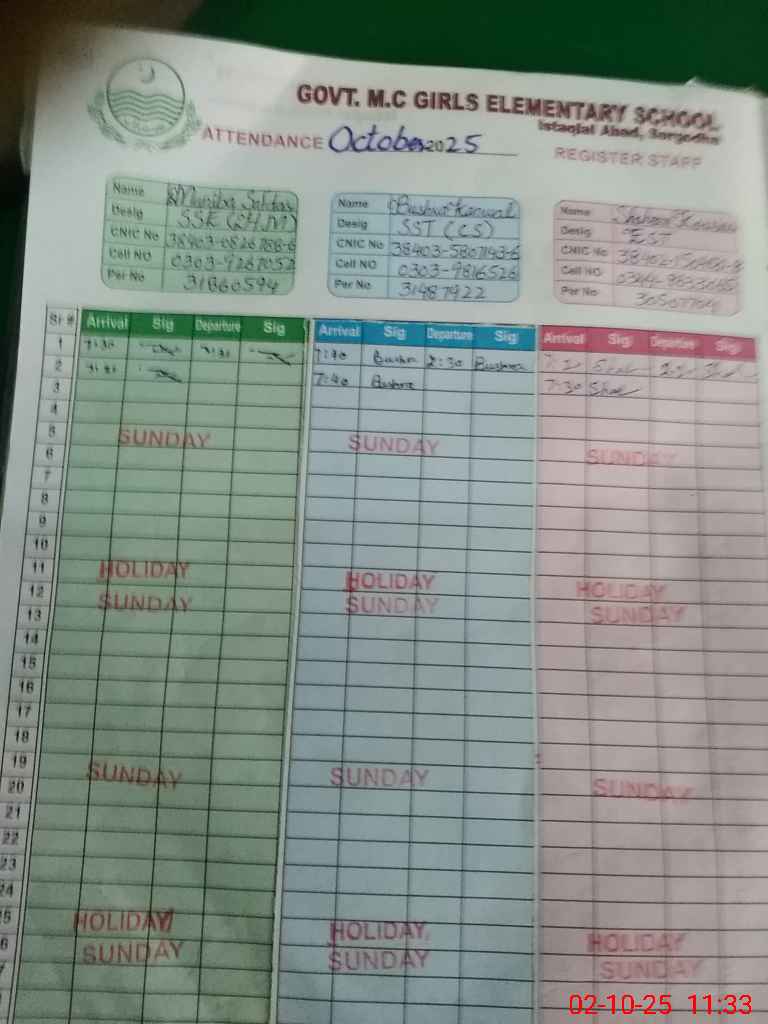 GOVT. M.C GIRLS ELEMENTARY SCHOOL
Istaqlal Abad, Sargodha
ATTENDANCE October 2025
REGISTER STAFF
Name
Desig SSE (S.H.M)
CNIC No
Cell NO 0303-9267052
Per No 31860594
Name Bushra Kanwal
Desig SST (CS)
CNIC No 38403-5807193-6
Cell NO 0303-9816526
Per No 31487922
Name
Desig EST
CNIC No
Cell NO
Per No
Sr # Arrival Sig Departure Sig Arrival Sig Departure Sig Arrival Sig Departure Sig
1 7:30 7:40 Bushra 2:30 Bushra
2 7:40 Bushra 7:30
3
4
5 SUNDAY SUNDAY SUNDAY
6
7
8
9
10
11 HOLIDAY HOLIDAY HOLIDAY
12 SUNDAY SUNDAY SUNDAY
13
14
15
16
17
18
19 SUNDAY SUNDAY SUNDAY
20
21
22
23
24
5 HOLIDAY HOLIDAY HOLIDAY
6 SUNDAY SUNDAY SUNDAY
7
02-10-25 11:33